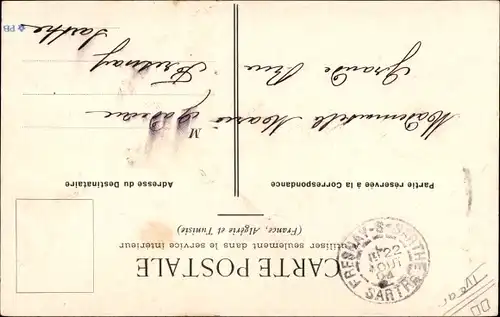 CARTE POSTALE
(Utiliser seulement dans le service intérieur
(France, Algérie et Tunisie)
Partie réservée à la Correspondance
Adresse du Destinataire
M
Mademoiselle Marie
Grande Rue
Fresnay
Sarthe
FRESNAY-S-SARTHE
22
AOUT
04
SARTHE
PB